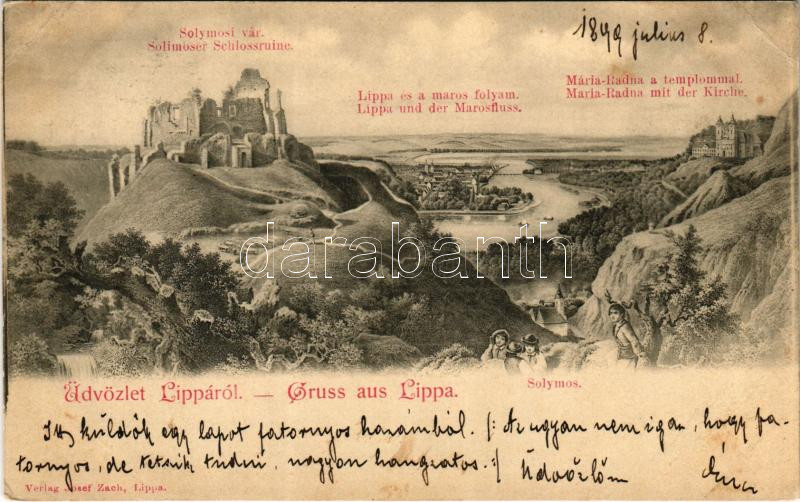 Solymosi vár.
Solimoser Schlossruine.
1899 július 8.
Lippa es a maros folyam.
Lippa und der Marosfluss.
Mária-Radna a templommal.
Maria-Radna mit der Kirche.
darabanth
Solymos.
Üdvözlet Lippáról. — Gruss aus Lippa.
Itt küldök egy lapot fatornyos hazámból. /: Az ugyan nem igaz, hogy fa-
tornyos, de tetszik tudni, nagyon hangzatos. :/ Üdvözlöm
Verlag Josef Zach, Lippa.